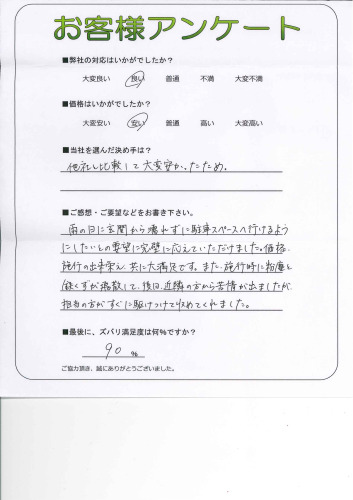 お客様アンケート
■弊社の対応はいかがでしたか?
大変良い 良い 普通 不満 大変不満
■価格はいかがでしたか?
大変安い 安い 普通 高い 大変高い
■当社を選んだ決め手は?
他社と比較して大変安かったため。
■ご感想・ご要望などをお書き下さい。
雨の日に玄関から濡れずに駐車スペースへ行けるよう
にしたいとの要望に完璧に応えていただけました。価格、
施行の出来栄え 共に大満足です。また、施行時に粉塵と
鉄くずが飛散して、後日、近隣の方から苦情が出ましたが、
担当の方がすぐに駆けつけて収めてくれました。
■最後に、ズバリ満足度は何%ですか?
90 %
ご協力頂き、誠にありがとうございました。